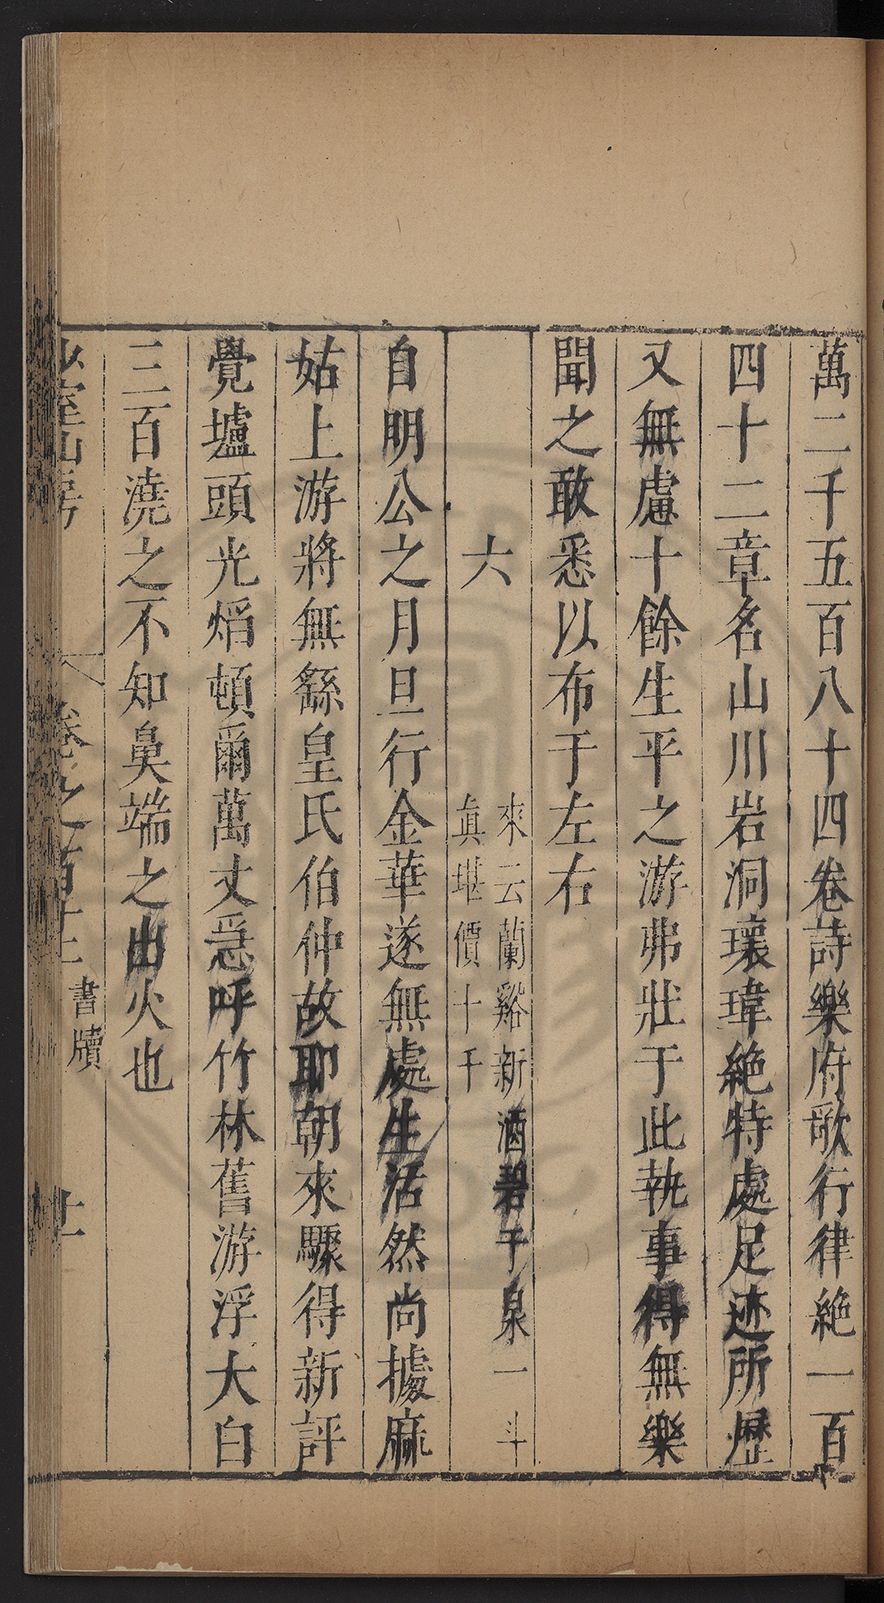 萬二千五百八十四卷詩樂府歌行律絶一百
四十二章名山川岩洞瓌瑋絶特處足迹所歷
又無慮十餘生平之游弗壯于此執事得無樂
聞之敢悉以布于左右
六
來云蘭谿新酒碧于泉一斗
眞堪價十千
自明公之月旦行金華遂無處生活然尚據麻
姑上游將無繇皇氏伯仲故耶朝來驟得新評
覺壚頭光焰頓爾萬丈亟呼竹林舊游浮大白
三百澆之不知鼻端之出火也
少室山房
卷之百十
書牘
十